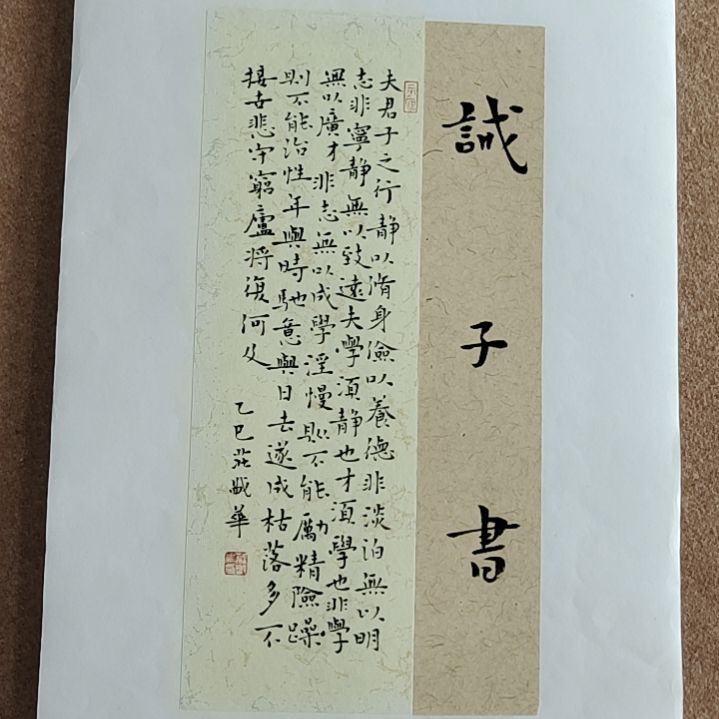 誡子書
夫君子之行靜以脩身儉以養德非淡泊無以明
志非寧靜無以致遠夫學須靜也才須學也非學
無以廣才非志無以成學淫慢則不能勵精險躁
則不能治性年與時馳意與日去遂成枯落多不
接世悲守窮廬將復何及
乙巳莊華